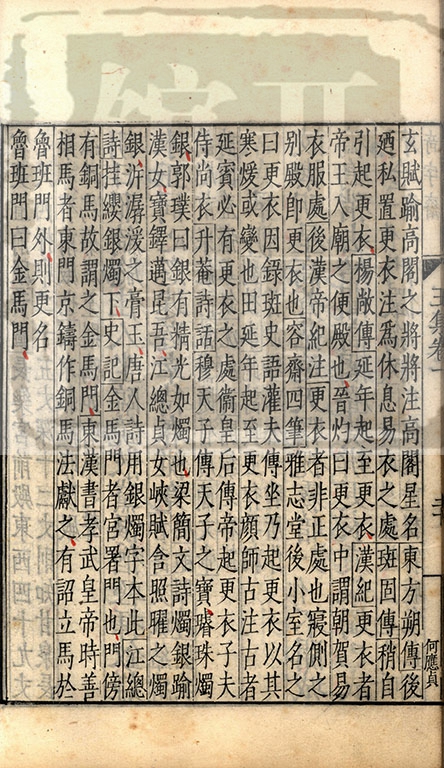 玄賦踰高閣之將將注高閣星名東方朔傳後
廼私置更衣注為休息易衣之處班固傳稍自
引起更衣楊敞傳延年起至更衣漢紀更衣者
帝王入廟之便殿也晉灼曰更衣中謂朝賀易
衣服處後漢帝紀注更衣者非正處也寢側之
別殿即更衣也容齋四筆雅志堂後小室名之
曰更衣因錄班史語灌夫傳坐乃起更衣以其
寒煖或變也田延年起至更衣顏師古注古者
延賓必有更衣之處衞皇后傳帝起更衣子夫
侍尚衣升菴詩話穆天子傳天子之寶璿珠燭
銀郭璞曰銀有精光如燭也梁簡文詩燭銀踰
漢女寶鐸邁昆吾江總貞女峽賦含照曜之燭
銀泝潺湲之膏玉唐人詩用銀燭字本此江總
詩挂纓銀燭下史記金馬門者宮署門也門傍
有銅馬故謂之金馬門東漢書孝武皇帝時善
相馬者東門京鑄作銅馬法獻之有詔立馬於
魯班門外則更名
魯班門曰金馬門
何應貞